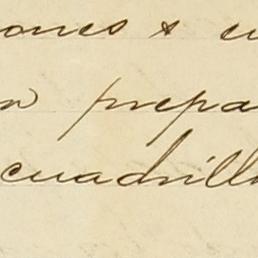 ones & 
prepa
cuadrill